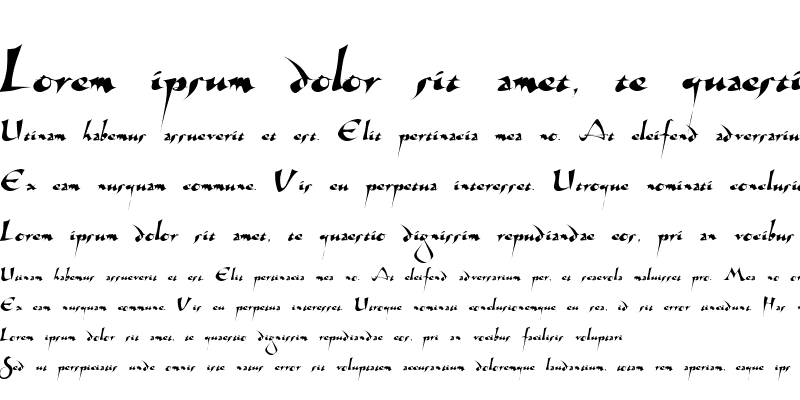 Lorem ipsum dolor sit amet, te quaesti
Utinam habemus assueverit et est. Elit pertinacia mea no. At eleifend adversariu
Ex eam nusquam commune. Vis eu perpetua interesset. Utroque nominati conclusi
Lorem ipsum dolor sit amet, te quaestio dignissim repudiandae eos, pri an vocibus
Utinam habemus assueverit et est. Elit pertinacia mea no. At eleifend adversarium per, et scaevola maluisset pro. Mea no or
Ex eam nusquam commune. Vis eu perpetua interesset. Utroque nominati conclusionemque eu sea, id sit error tincidunt. Has
Lorem ipsum dolor sit amet, te quaestio dignissim repudiandae eos, pri an vocibus facilisis voluptari
Sed ut perspiciatis unde omnis iste natus error sit voluptatem accusantium doloremque laudantium, totam rem aperiam, eaque ips